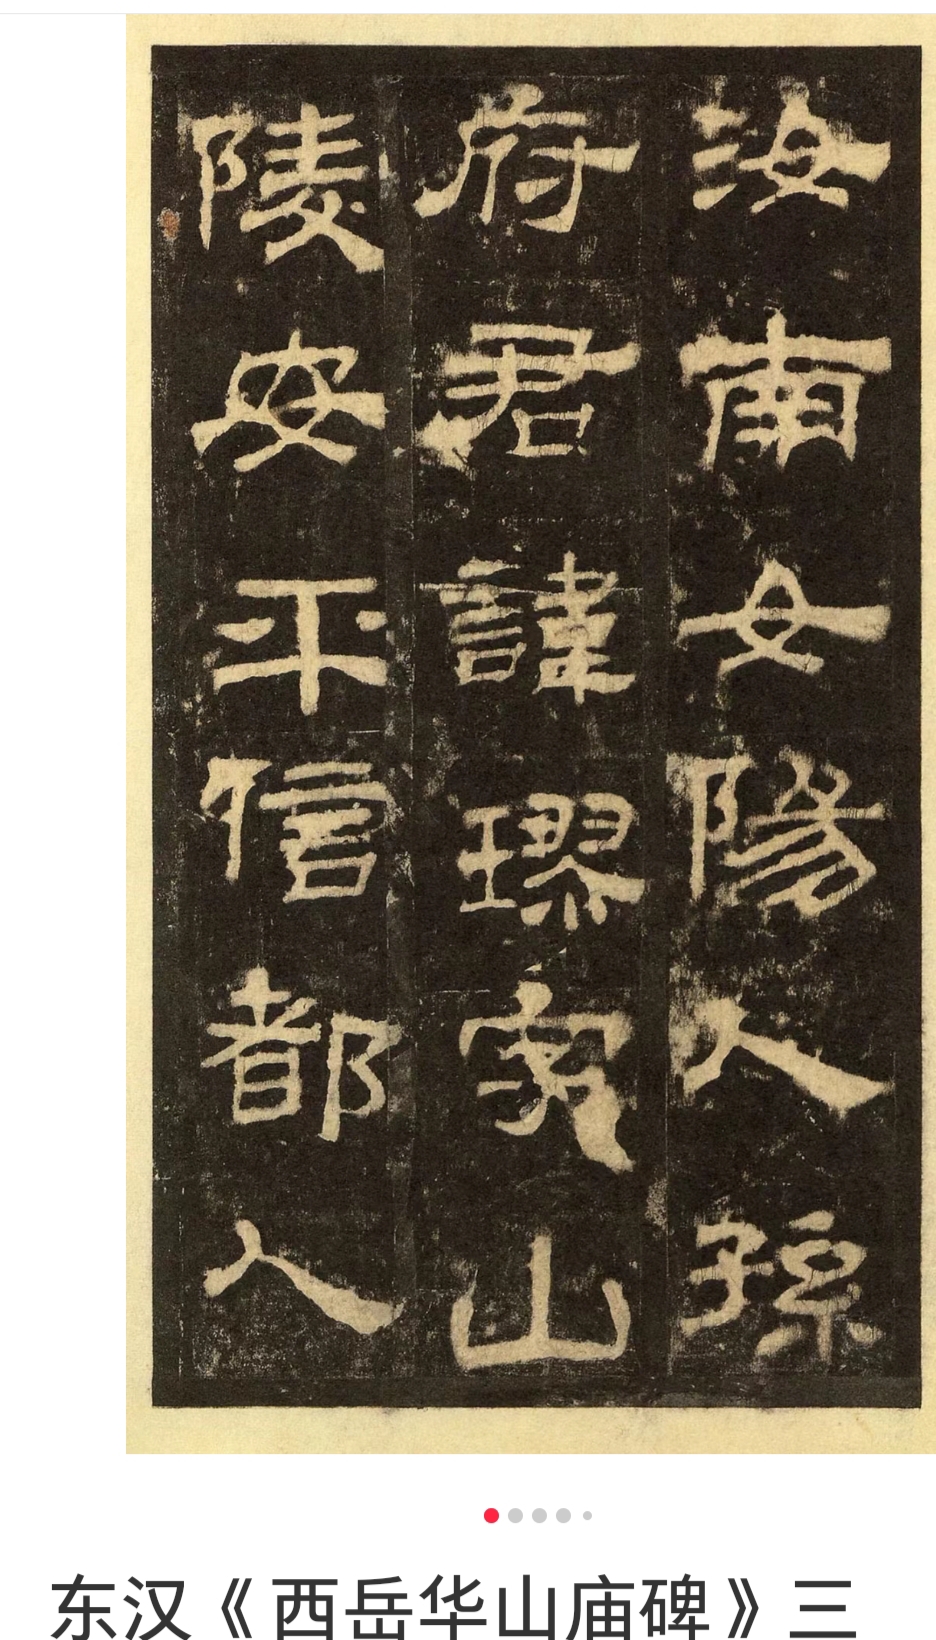 汝南女陽人孫
府君諱璆字山
陵安平信都人
东汉《西岳华山庙碑》三